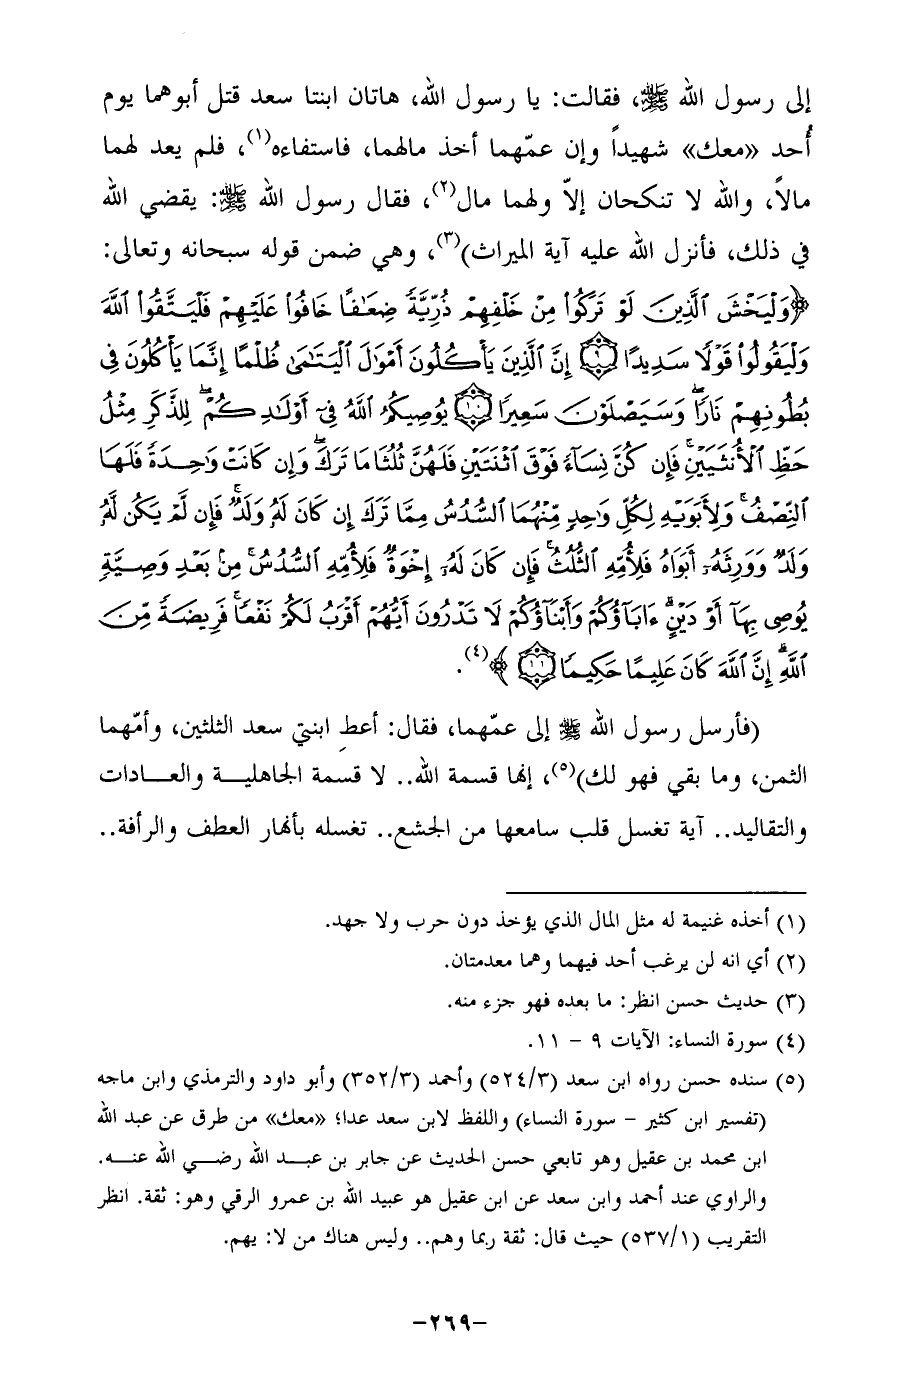 إلى رسول الله ﷺ، فقالت: يا رسول الله، هاتان ابنتا سعد قتل أبوهما يوم
أُحد «معك» شهيداً وإن عمّهما أخذ مالهما، فاستفاءه(١)، فلم يعد لهما
مالاً، والله لا تنكحان إلاّ ولهما مال(٢)، فقال رسول الله ﷺ: يقضي الله
في ذلك، فأنزل الله عليه آية الميراث)(٣)، وهي ضمن قوله سبحانه وتعالى:
﴿وَلْيَخْشَ ٱلَّذِينَ لَوْ تَرَكُوا۟ مِنْ خَلْفِهِمْ ذُرِّيَّةً ضِعَٰفًا خَافُوا۟ عَلَيْهِمْ فَلْيَتَّقُوا۟ ٱللَّهَ
وَلْيَقُولُوا۟ قَوْلًا سَدِيدًا ۝٩ إِنَّ ٱلَّذِينَ يَأْكُلُونَ أَمْوَٰلَ ٱلْيَتَٰمَىٰ ظُلْمًا إِنَّمَا يَأْكُلُونَ فِى
بُطُونِهِمْ نَارًا ۖ وَسَيَصْلَوْنَ سَعِيرًا ۝١٠ يُوصِيكُمُ ٱللَّهُ فِىٓ أَوْلَٰدِكُمْ ۖ لِلذَّكَرِ مِثْلُ
حَظِّ ٱلْأُنثَيَيْنِ ۚ فَإِن كُنَّ نِسَآءً فَوْقَ ٱثْنَتَيْنِ فَلَهُنَّ ثُلُثَا مَا تَرَكَ ۖ وَإِن كَانَتْ وَٰحِدَةً فَلَهَا
ٱلنِّصْفُ ۚ وَلِأَبَوَيْهِ لِكُلِّ وَٰحِدٍ مِّنْهُمَا ٱلسُّدُسُ مِمَّا تَرَكَ إِن كَانَ لَهُۥ وَلَدٌ ۚ فَإِن لَّمْ يَكُن لَّهُۥ
وَلَدٌ وَوَرِثَهُۥٓ أَبَوَاهُ فَلِأُمِّهِ ٱلثُّلُثُ ۚ فَإِن كَانَ لَهُۥٓ إِخْوَةٌ فَلِأُمِّهِ ٱلسُّدُسُ ۚ مِنۢ بَعْدِ وَصِيَّةٍ
يُوصِى بِهَآ أَوْ دَيْنٍ ۗ ءَابَآؤُكُمْ وَأَبْنَآؤُكُمْ لَا تَدْرُونَ أَيُّهُمْ أَقْرَبُ لَكُمْ نَفْعًا ۚ فَرِيضَةً مِّنَ
ٱللَّهِ ۗ إِنَّ ٱللَّهَ كَانَ عَلِيمًا حَكِيمًا ۝١١﴾(٤).
(فأرسل رسول الله ﷺ إلى عمّهما، فقال: أعطِ ابنتي سعد الثلثين، وأمّهما
الثمن، وما بقي فهو لك)(٥)، إنها قسمة الله.. لا قسمة الجاهلية والعادات
والتقاليد.. آية تغسل قلب سامعها من الجشع.. تغسله بأنهار العطف والرأفة..
(١) أخذه غنيمة له مثل المال الذي يؤخذ دون حرب ولا جهد.
(٢) أي انه لن يرغب أحد فيهما وهما معدمتان.
(٣) حديث حسن انظر: ما بعده فهو جزء منه.
(٤) سورة النساء: الآيات ٩ – ١١.
(٥) سنده حسن رواه ابن سعد (٥٢٤/٣) وأحمد (٣٥٢/٣) وأبو داود والترمذي وابن ماجه
(تفسير ابن كثير – سورة النساء) واللفظ لابن سعد عدا؛ «معك» من طرق عن عبد الله
ابن محمد بن عقيل وهو تابعي حسن الحديث عن جابر بن عبد الله رضي الله عنه.
والراوي عند أحمد وابن سعد عن ابن عقيل هو عبيد الله بن عمرو الرقي وهو: ثقة. انظر
التقريب (٥٣٧/١) حيث قال: ثقة ربما وهم.. وليس هناك من لا: يهم.
-٢٦٩-